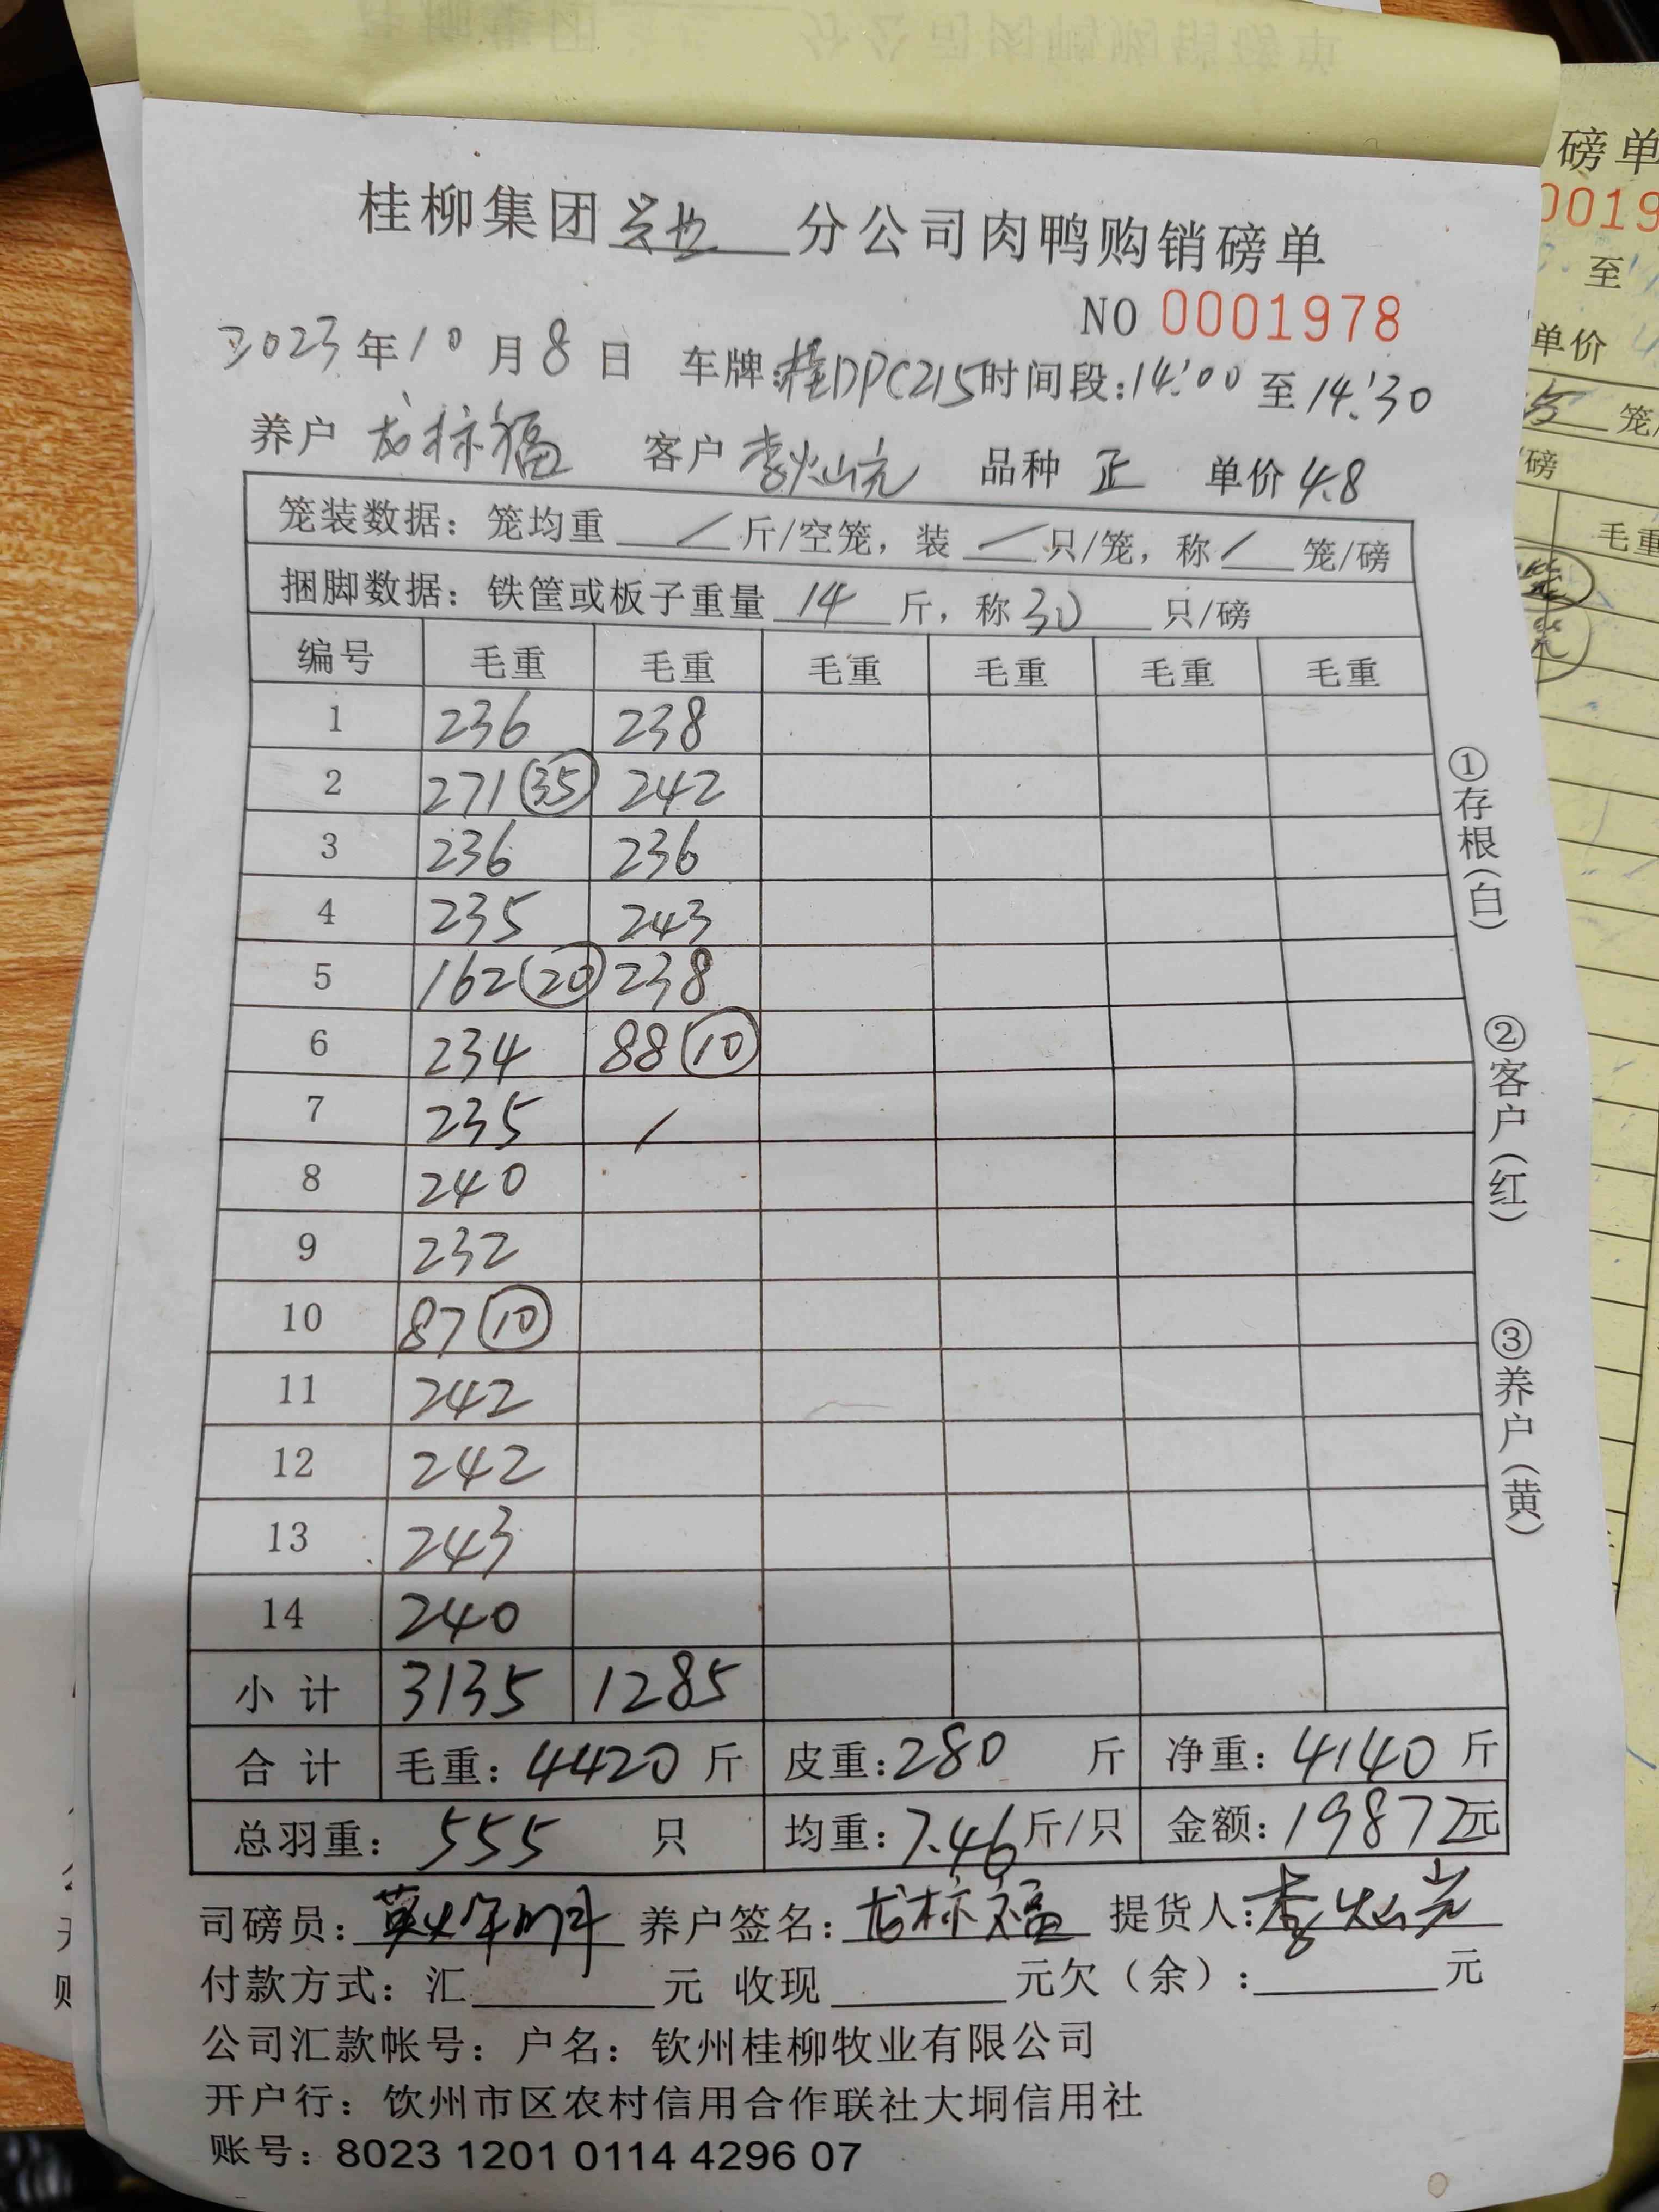 桂柳集团兴业分公司肉鸭购销磅单
NO 0001978
2023年10月8日 车牌:桂DPC215时间段:14:00至14:30
养户 龙标福 客户 李灿光 品种 正 单价 4.8
笼装数据: 笼均重 / 斤/空笼, 装 / 只/笼, 称 / 笼/磅
捆脚数据: 铁筐或板子重量 14 斤, 称 30 只/磅
编号 毛重 毛重 毛重 毛重 毛重 毛重
1 236 238
2 271 (35) 242
3 236 236
4 235 243
5 162 (20) 238
6 234 88 (10)
7 235 /
8 240
9 232
10 87 (10)
11 242
12 242
13 243
14 240
小计 3135 1285
合计 毛重: 4420 斤 皮重: 280 斤 净重: 4140 斤
总羽重: 555 只 均重: 7.46 斤/只 金额: 19872元
司磅员: 养户签名: 龙标福 提货人: 李灿光
付款方式: 汇 元 收现 元欠（余）: 元
公司汇款帐号: 户名: 钦州桂柳牧业有限公司
开户行: 饮州市区农村信用合作联社大垌信用社
账号: 8023 1201 0114 4296 07
①存根(白)
②客户(红)
③养户(黄)
磅单
0019
至
单价
笼/
磅
毛重